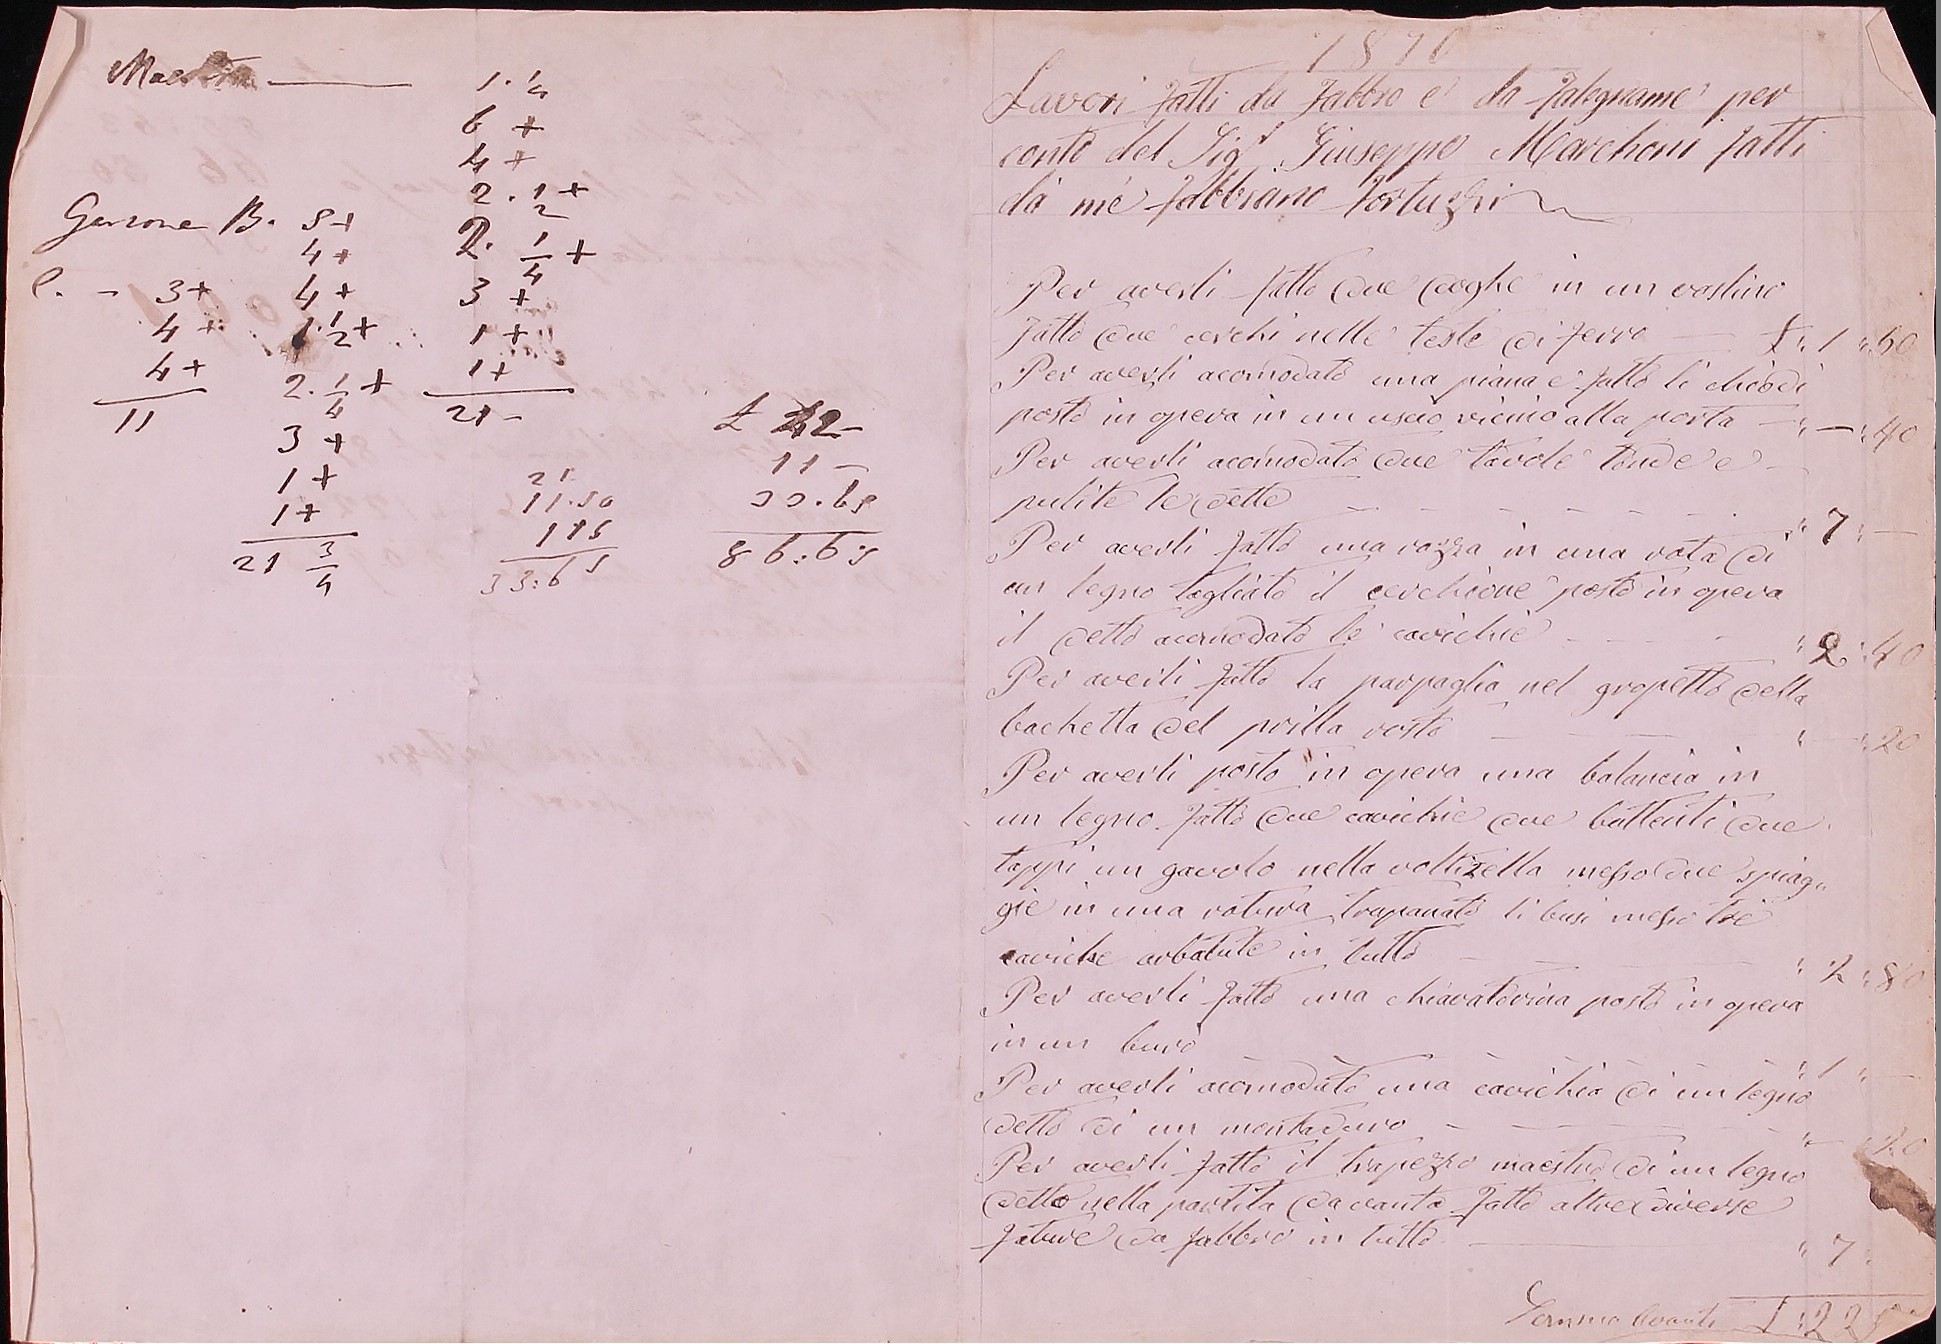 1.¼
6 +
4 +
2.½+
Garzone B. 8+
2.¼+
4+
C. - 3+
4+
3 +
4+
1.½+
1 +
4+
2.¼+
1+
11
21-
3 +
£ 42-
11-
1 +
21
33.65
1+
11.50
115
86:65
21 ¾
33:65
Lavori fatti da Fabbro e da Falegname per
conto del Sig.r Giuseppe Marchoni fatti
da me Fabbiano Portuzzi
Per averli fatto due coghe in un rostino
fatto due cerchi nelle teste di ferro £ 1 : 60
Per averli acomodato una piana e fatto li chiodi
posto in opera in un uscio vicino alla porta — " — : 40
Per averli acomodato due tavole tonde e
pulite le dette " 7 : —
Per averli fatto una razza in una rota di
un legno tagliato il cerchione posto in opera
il detto acomodato le cavichie " 2 : 40
Per averli fatto la parpaglia nel gropetto della
bachetta del prilla rosto " — : 20
Per averli posto in opera una balancia in
un legno fatto due cavichie due battenti due
tappi un gavolo nella voltizella messo due spiag-
gie in una rotura trapanato li busi messo tre
caviche arbatute in tutto " 2 : 80
Per averli fatto una chiavaterina posto in opera
in un burò " 1 : —
Per averli acomodato una cavichia di un legno
detto di un montaduro " — 20
Per averli fatto il trapezio maestro di un legno
detto nella partita davanta fatto altre diverse
fature da fabbro in tutto " 7 :
Somma Avanti £ : 22